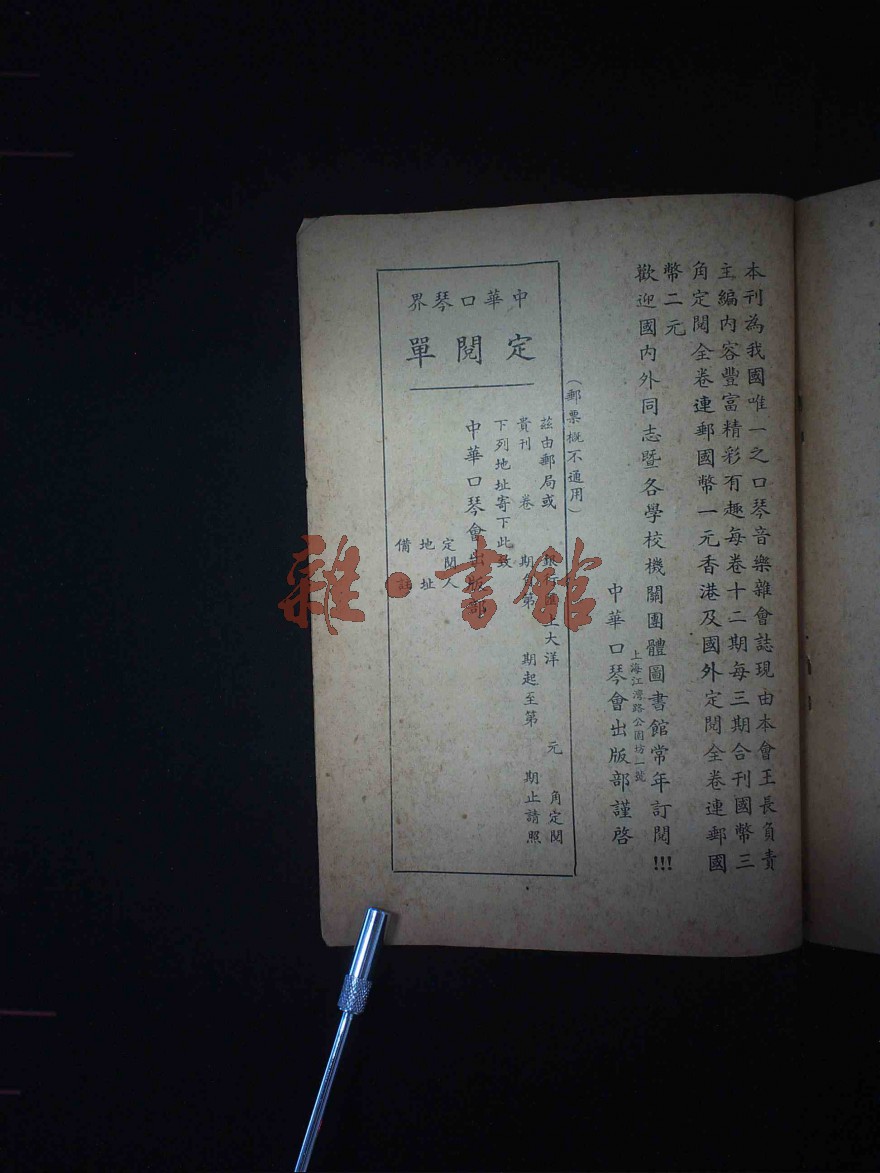 本刊為我國唯一之口琴音樂雜會誌現由本會王長負責
主編内容豐富精彩有趣每卷十二期每三期合刊國幣三
角定閱全卷連郵國幣一元香港及國外定閱全卷連郵國
幣二元
歡迎國内外同志暨各學校機關團體圖書館常年訂閱!!!
上海江灣路公園坊一號
中華口琴會出版部謹啓
(郵票概不通用)
中華口琴界
定閱單
茲由郵局或 銀行 上大洋 元 角定閱
貴刊 卷 期 第 期起至第 期止請照
下列地址寄下此致
中華口琴會出版部
定閱人
地址
備註
雜·書館